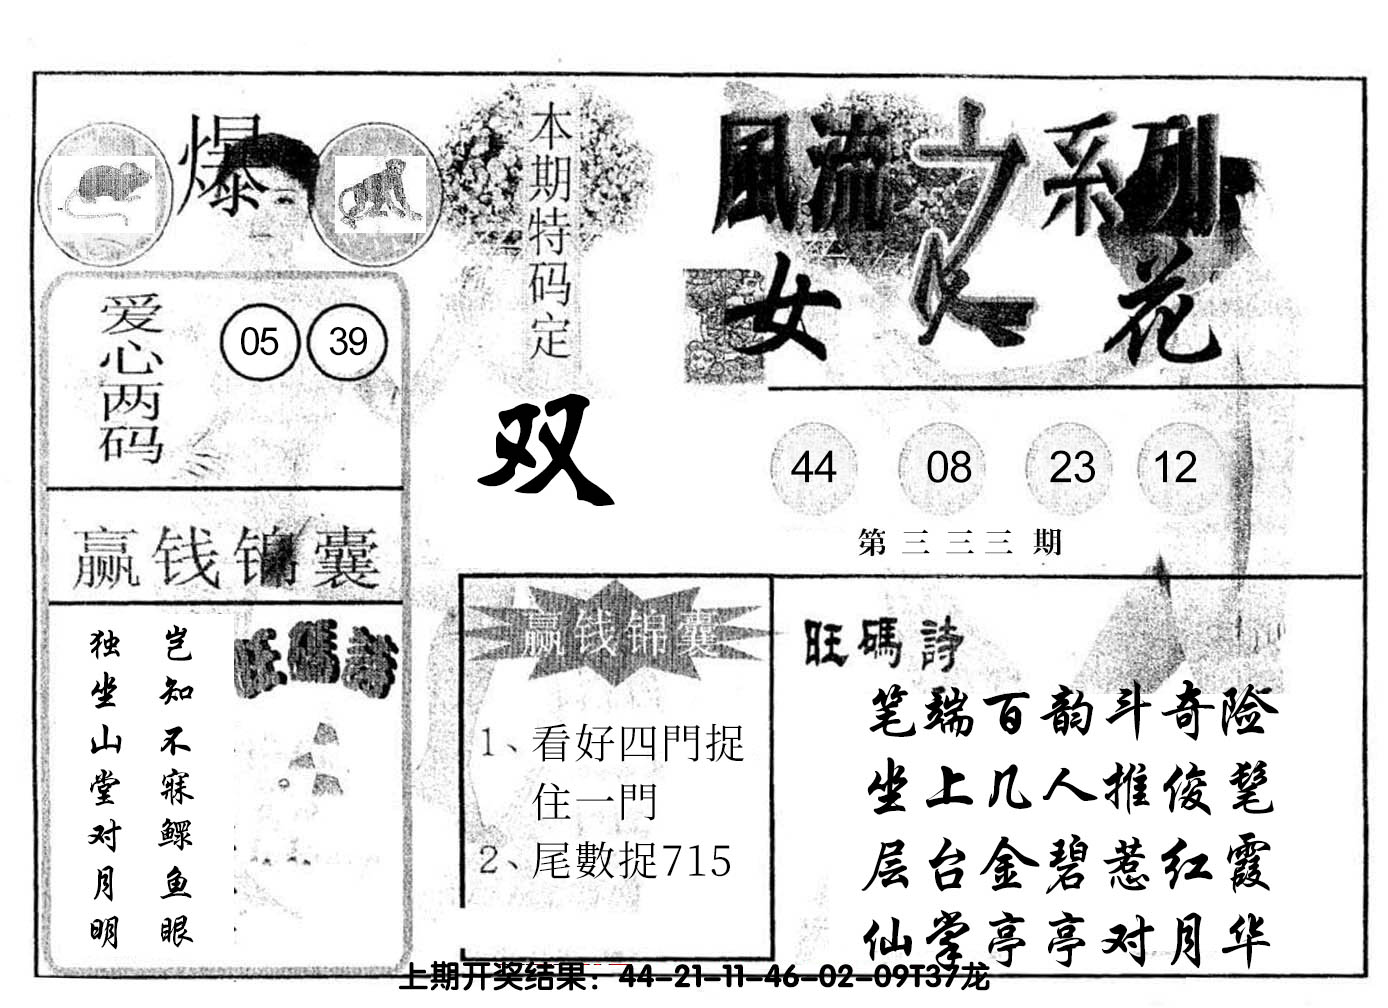 爆
本期特码定
双
風流之系列
女人花
爱心两码
05 39
44 08 23 12
第三三三期
赢钱锦囊
岂知不寐鳏鱼眼
独坐山堂对月明
旺碼詩
赢钱锦囊
1、看好四門捉
住一門
2、尾數捉715
旺碼詩
笔端百韵斗奇险
坐上几人推俊髦
层台金碧惹红霞
仙掌亭亭对月华
上期开奖结果：44-21-11-46-02-09T37龙